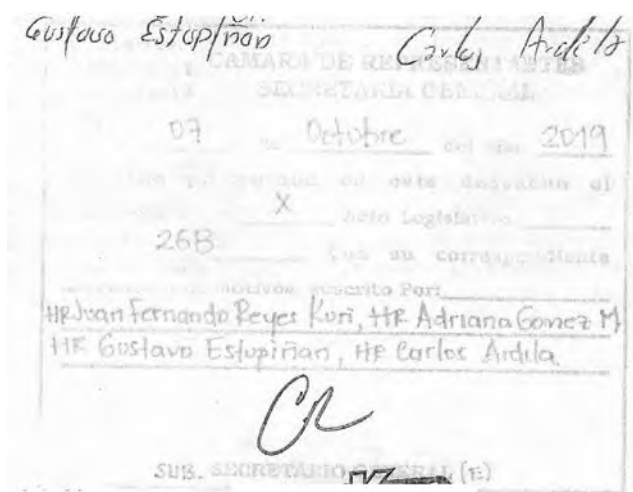 Gustavo Estupiñan Carlos Ardila
CAMARA DE REPRESENTANTES
SECRETARIA GENERAL
07 Octubre del año 2019
en este despacho el
X Acto Legislativo
268 Con su correspondiente
motivos suscrito Por:
HR Juan Fernando Reyes Kuri, HR Adriana Gomez M
HR Gustavo Estupiñan, HR Carlos Ardila
SUB. SECRETARIO GENERAL (E)